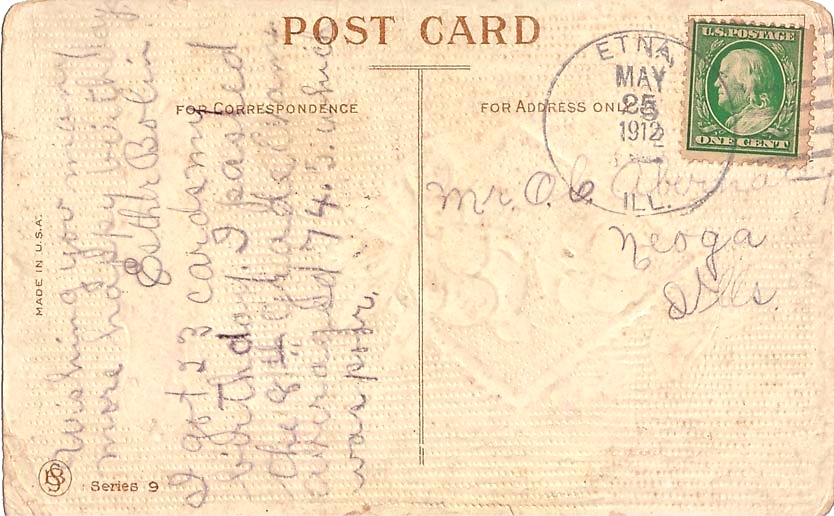 POST CARD
FOR CORRESPONDENCE
FOR ADDRESS ONLY
U.S. POSTAGE
ONE CENT
ETNA,
MAY
25
1912
ILL.
Mr. O. C.
Neoga
Ills.
Wishing you many
more happy birthday
Esther Bolin
I got 23 cards my
birthday. I passed
the 8th grade exam
averaged 74.3. which
was poor.
MADE IN U.S.A.
Series 9